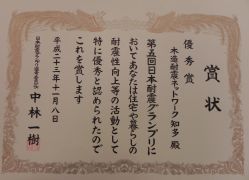 賞状
優秀賞
木造耐震ネットワーク知多 殿
第五回日本耐震グランプリに
おいてあなたは住宅や暮らしの
耐震性向上等の活動として
特に優秀と認められたので
これを賞します
平成二十三年十一月八日
中林一樹